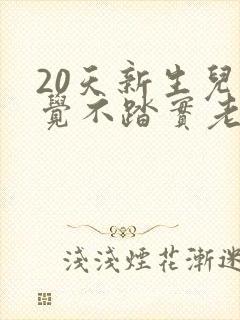 20天新生兒
覺不踏實老
淺淺煙花漸迷